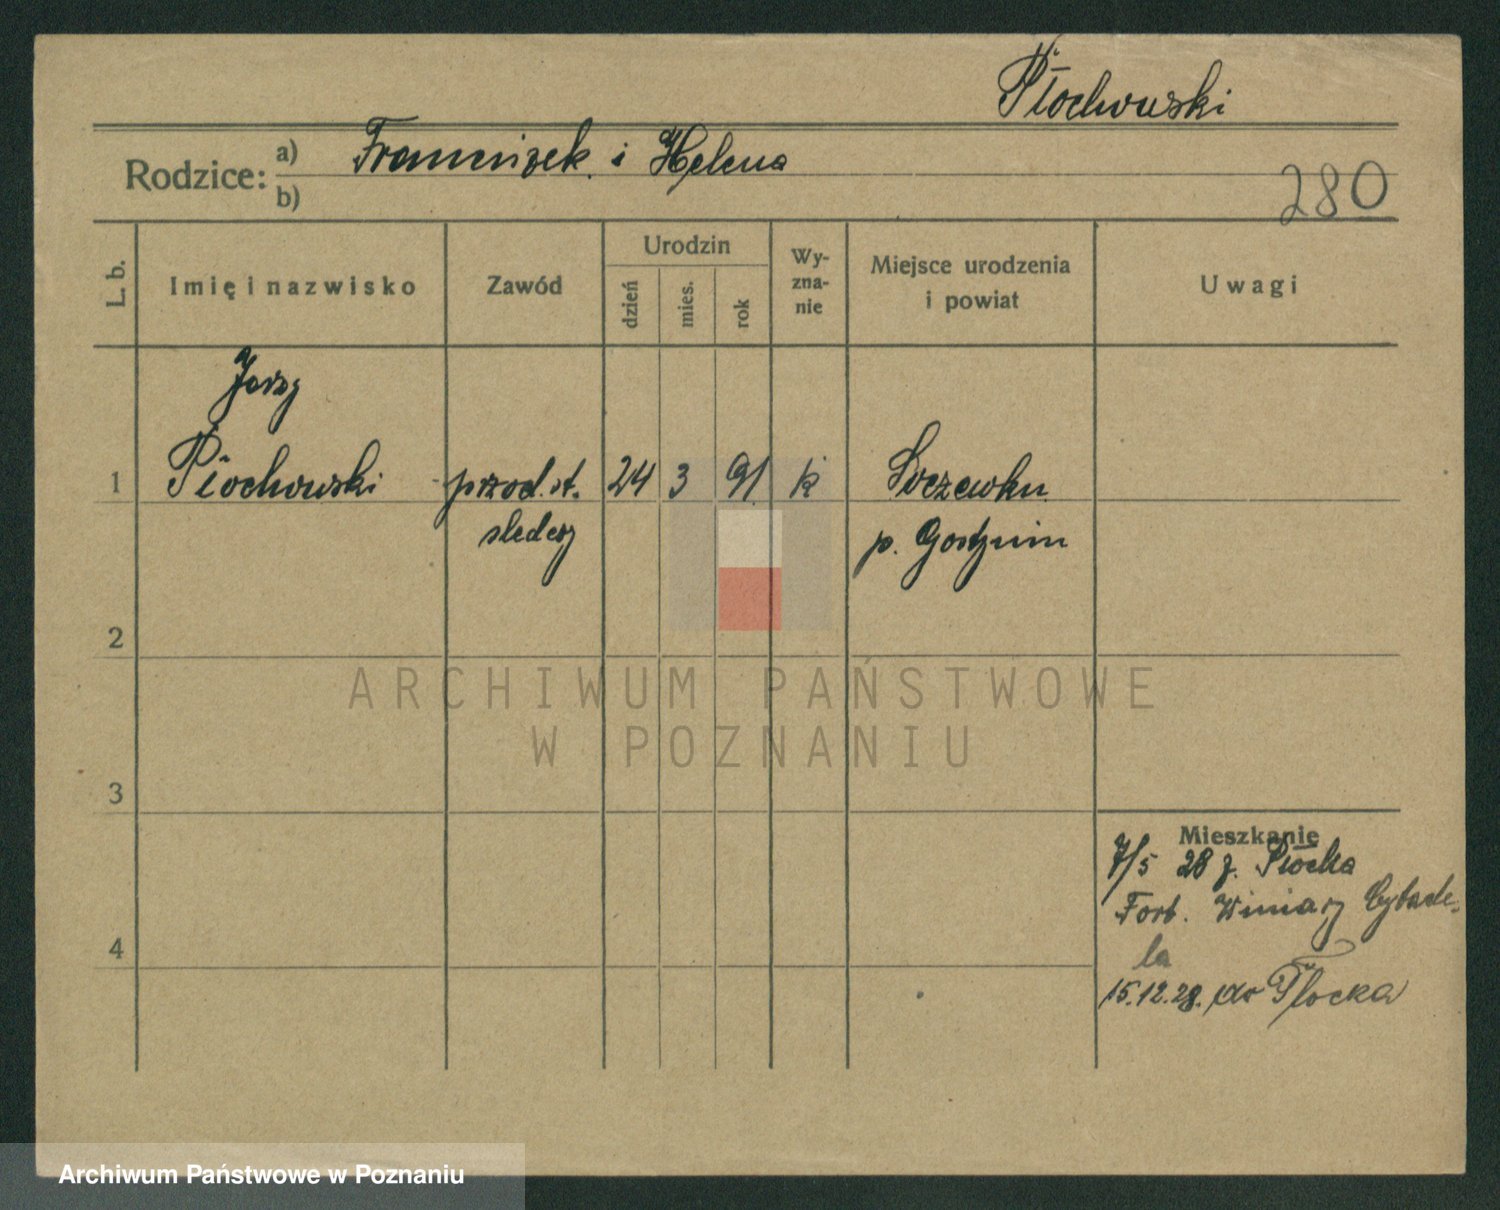 Płochowski
Rodzice: a) Franciszek i Helena
b)
280
L. b.
Imię i nazwisko
Zawód
Urodzin
dzień
mies.
rok
Wy-
zna-
nie
Miejsce urodzenia
i powiat
Uwagi
Jerzy
1 Płochowski przod. st. 24 3 91 k Soczewku
śledczy p. Gostynin
2
ARCHIWUM PAŃSTWOWE
W POZNANIU
3
Mieszkanie
7/5 28 z Płocka
Fort. Winiary Cytade-
la
4
15.12.28. do Płocka
Archiwum Państwowe w Poznaniu